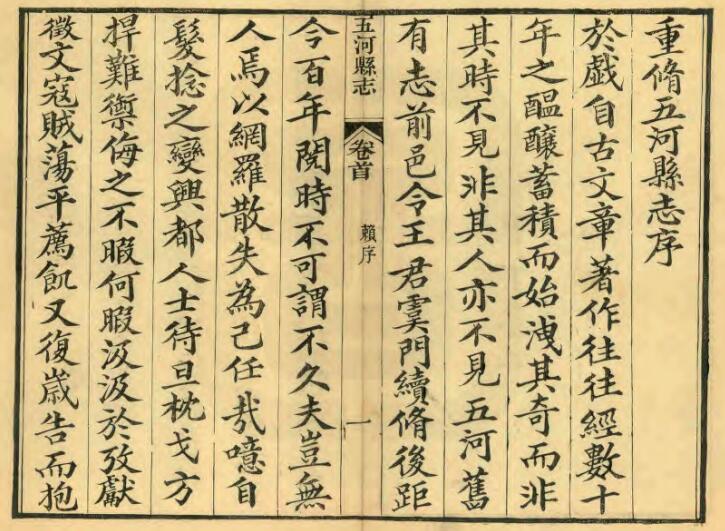 重脩五河縣志序
於戲自古文章著作往往經數十
年之醞釀蓄積而始洩其奇而非
其時不見非其人亦不見五河舊
有志前邑令王君霙門續脩後距
五河縣志
卷首
賴序
一
今百年閱時不可謂不久夫豈無
人焉以網羅散失為己任㢤噫自
髮捻之變興都人士待旦枕戈方
捍難禦侮之不暇何暇汲汲於攷獻
徵文寇賊蕩平薦飢又復歲告而抱